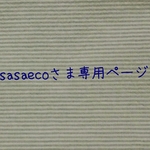 sasaecoさま専用ページ